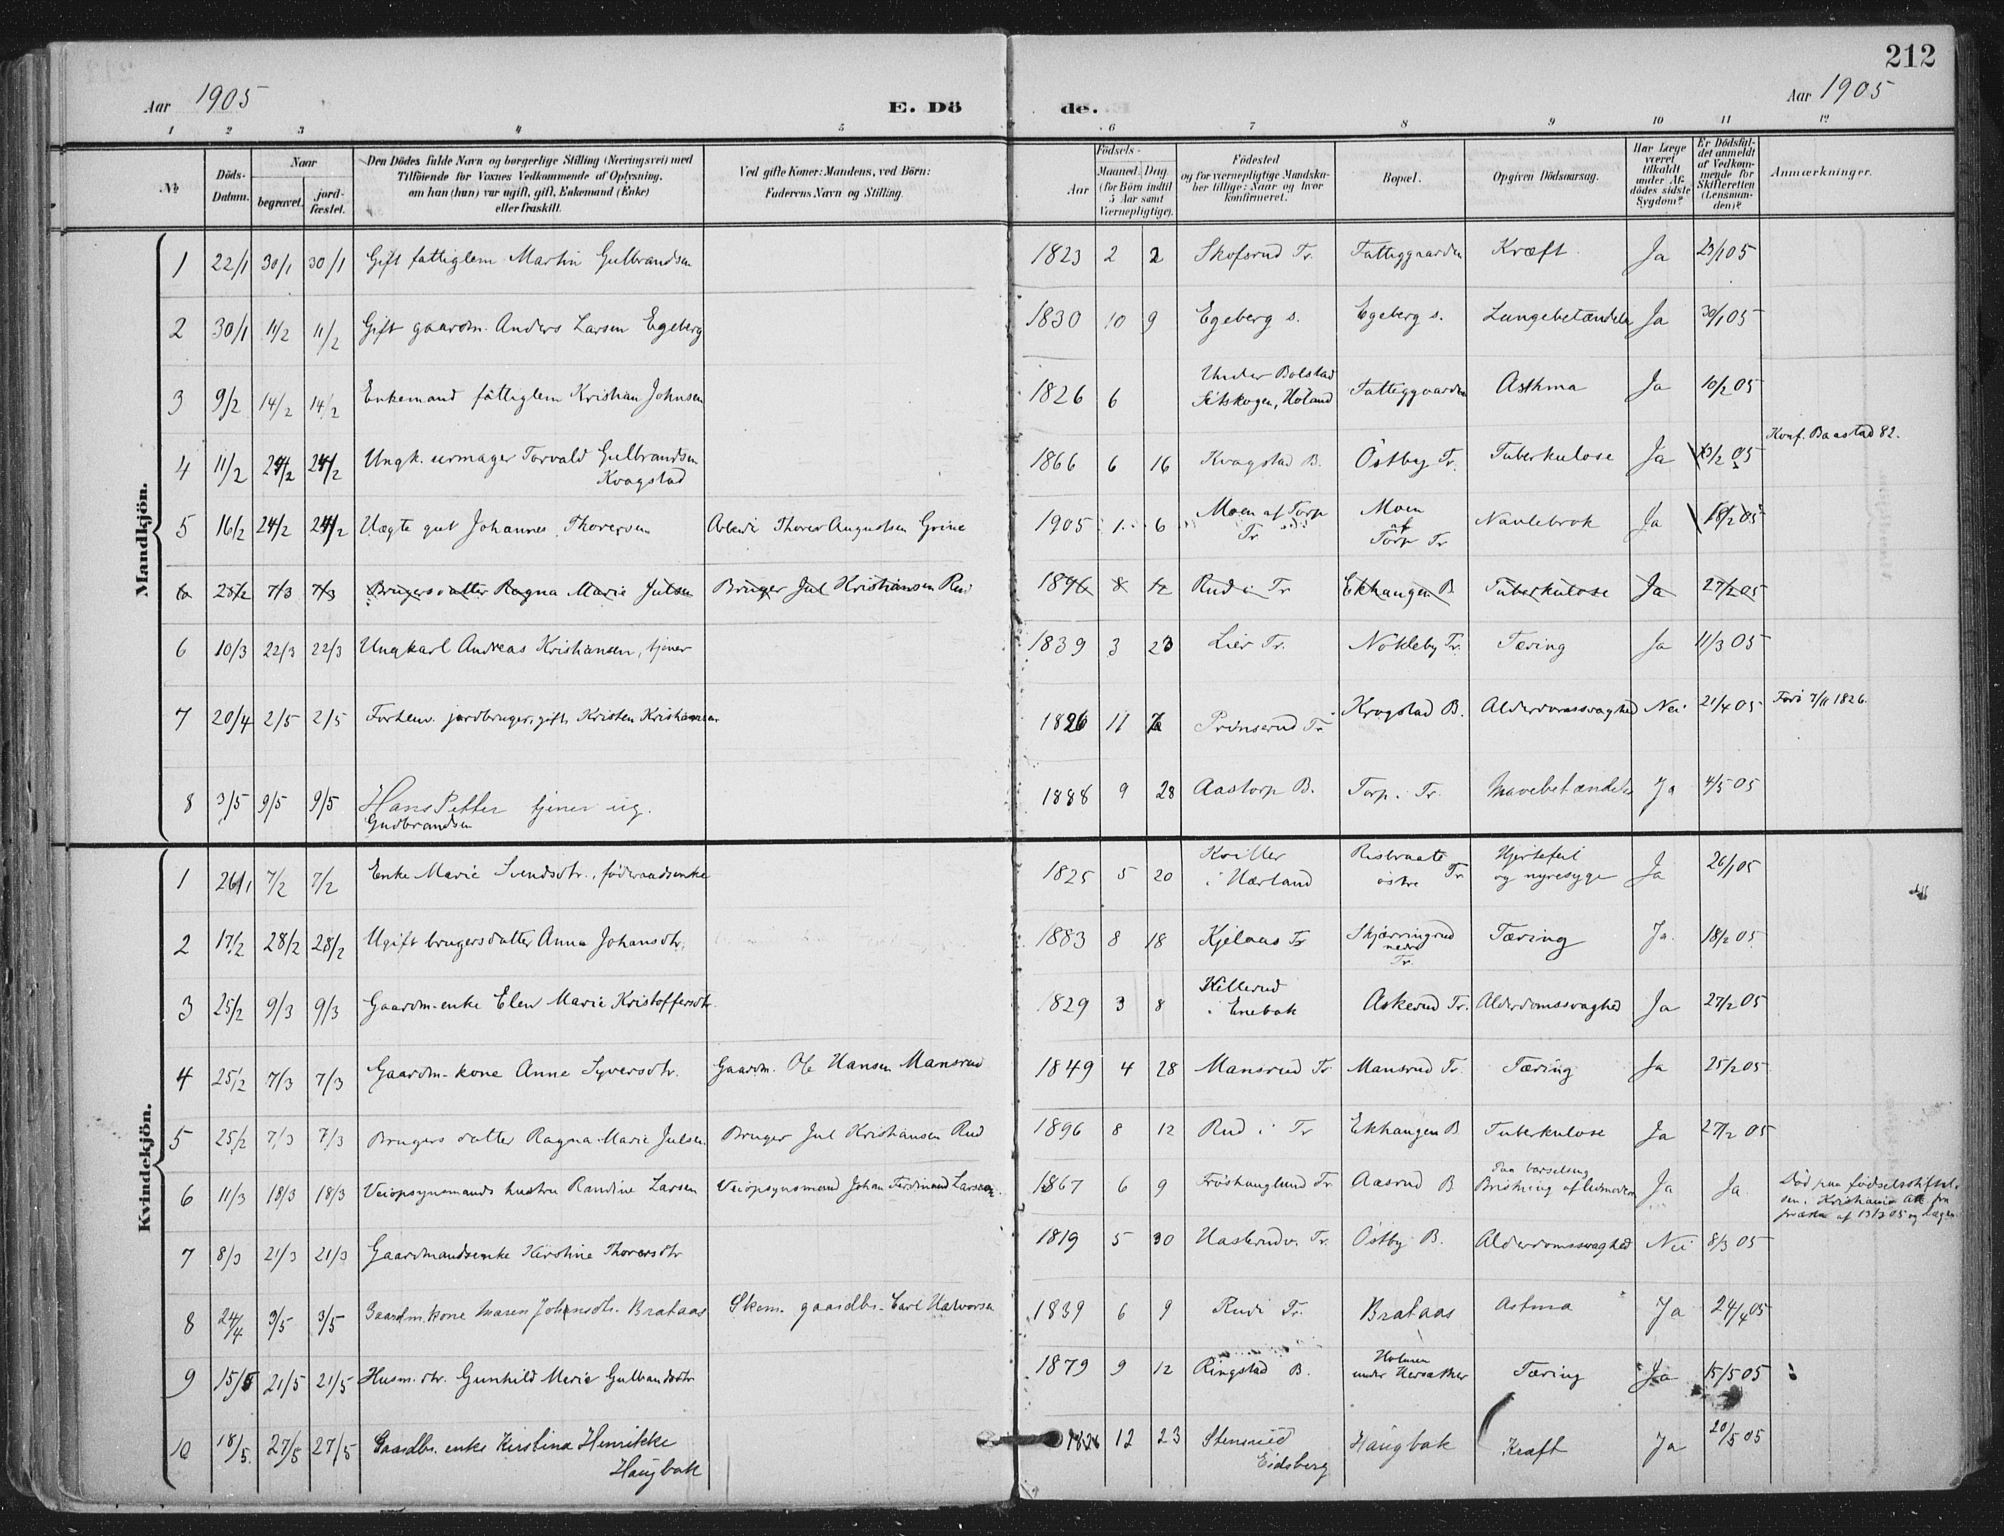 212
Aar 1905 E. Dö de. Aar 1905
1 2 3 4 5 6 7 8 9 10 11 12
№ Döds-Datum. Naar begravet. jord-fæstet. Den Dödes fulde Navn og borgerlige Stilling (Næringsvei) med Tilföiende for Voxnes Vedkommende af Oplysning, om han (hun) var ugift, gift, Enkemand (Enke) eller fraskilt. Ved gifte Koner: Mandens, ved Börn: Faderens Navn og Stilling. Födsels- Aar Maaned. Dag (for Börn indtil 5 Aar samt Værnepligtige). Födested og for værnepligtige Mandskaber tillige: Naar og hvor konfirmeret. Bopæl. Opgiven Dödsaarsag. Har Læge været tilkaldt under Afdödes sidste Sygdom? Er Dödsfaldet anmeldt af Vedkommende for Skifteretten (Lensmanden)? Anmærkninger.
Mandkjön.
1 22/1 30/1 30/1 Gift fattiglem Martin Gulbrandsen 1823 2 2 Skofsrud Tr. Fattiggaarden Kræft Ja 23/1 05
2 30/1 11/2 11/2 Gift gaardm. Anders Larsen Egeberg 1830 10 9 Egeberg s. Egeberg s. Lungebetændelse Ja 30/1 05
3 9/2 14/2 14/2 Enkemand fattiglem Kristian Johnsen 1826 6 Under Bolstad Setskogen, Höland Fattiggaarden Asthma Ja 10/2 05
4 11/2 24/2 24/2 Ungk. urmager Torvald Gulbrandsen Kragstad 1866 6 16 Kragstad B. Östby Tr. Tuberkulose Ja 13/2 05 Konf. Baastad 82.
5 16/2 24/2 24/2 Uægte gut Johannes Thoresen Arbeider Thorer Augustsen Grine 1905 1 6 Moen af Torp Tr Moen af Torp Tr Navlebrok Ja 18/2 05
6 25/2 7/3 7/3 Brugersdatter Ragna Marie Julsen Bruger Jul Kristiansen Rud 1896 8 12 Rud i Tr Ekhaugen B Tuberkulose Ja 27/2 05
6 10/3 22/3 22/3 Ungkarl Andreas Kristiansen, tjener 1839 3 23 Lier Tr. Nökleby Tr. Tæring Ja 11/3 05
7 20/4 2/5 2/5 Forhenv. jordbruger, gift, Kristen Kristiansen 1826 11 7 Prinserud Tr Kragstad B. Alderdomssvaghed Nei 21/4 05 Födt 7/11 1826.
8 3/5 9/5 9/5 Hans Petter Gudbrandsen tjener ug. 1888 9 28 Aastorp B. Torp i Tr. Mavebetændelse Ja 4/5 05
Kvindekjön.
1 26/1 7/2 7/2 Enke Marie Svendsdtr., föderaadsenke 1825 5 20 Kviller i Hærland Risbraate östre Tr. Hjertefeil og nyresyge Ja 26/1 05
2 17/2 28/2 28/2 Ugift brugersdatter Anna Johansdtr. 1883 8 18 Kjelaas Tr Skjærringrud nedre Tr. Tæring Ja. 18/2 05
3 25/2 9/3 9/3 Gaardm-enke Elen Marie Kristoffersdtr. 1829 3 8 Hillerud i Enebak Askerud Tr. Alderdomssvaghed Ja 27/2 05
4 25/2 7/3 7/3 Gaardm-kone Anne Syversdtr. Gaardm. Ole Hansen Mansrud 1849 4 28 Mansrud Tr Mansrud Tr. Tæring Ja 25/2 05
5 25/2 7/3 7/3 Brugers datter Ragna Marie Julsen. Bruger Jul Kristiansen Rud 1896 8 12 Rud i Tr Ekhaugen B Tuberkulose Ja 27/2 05
6 11/3 18/3 18/3 Veiopsynsmands hustru Randine Larsen Veiopsynsmand Johan Ferdinand Larsen. 1867 6 9 Fröshauglund Tr. Aasrud B Paa barselseng Bristning af livmoderen Ja Ja. Död paa födselsstiftelsen i Kristiania Att. fra præsten af 13/3 05 og Lægen
7 8/3 21/3 21/3 Gaardmandsenke Kirstine Thoresdtr 1819 5 30 Haslerud v. Tr. Östby B. Alderdomssvaghed Nei 8/3 05
8 24/4 3/5 3/5 Gaardm.kone Maren Johansdtr. Brataas Skom. gaardbr. Carl Halvorsen 1839 6 9 Rud i Tr. Brataas Astma Ja 24/4 05
9 15/5 21/5 21/5 Husm.dtr. Gunhild Marie Gulbrandsdtr 1879 9 12 Ringstad B. Holmen under Hersæther Tæring Ja 15/5 05
10 18/5. 27/5 27/5 Gaardbr. enke Kirstina Henrikke Haugbak 1826 12 23 Stensrud Eidsberg Haugbak Kraft Ja 20/5 05